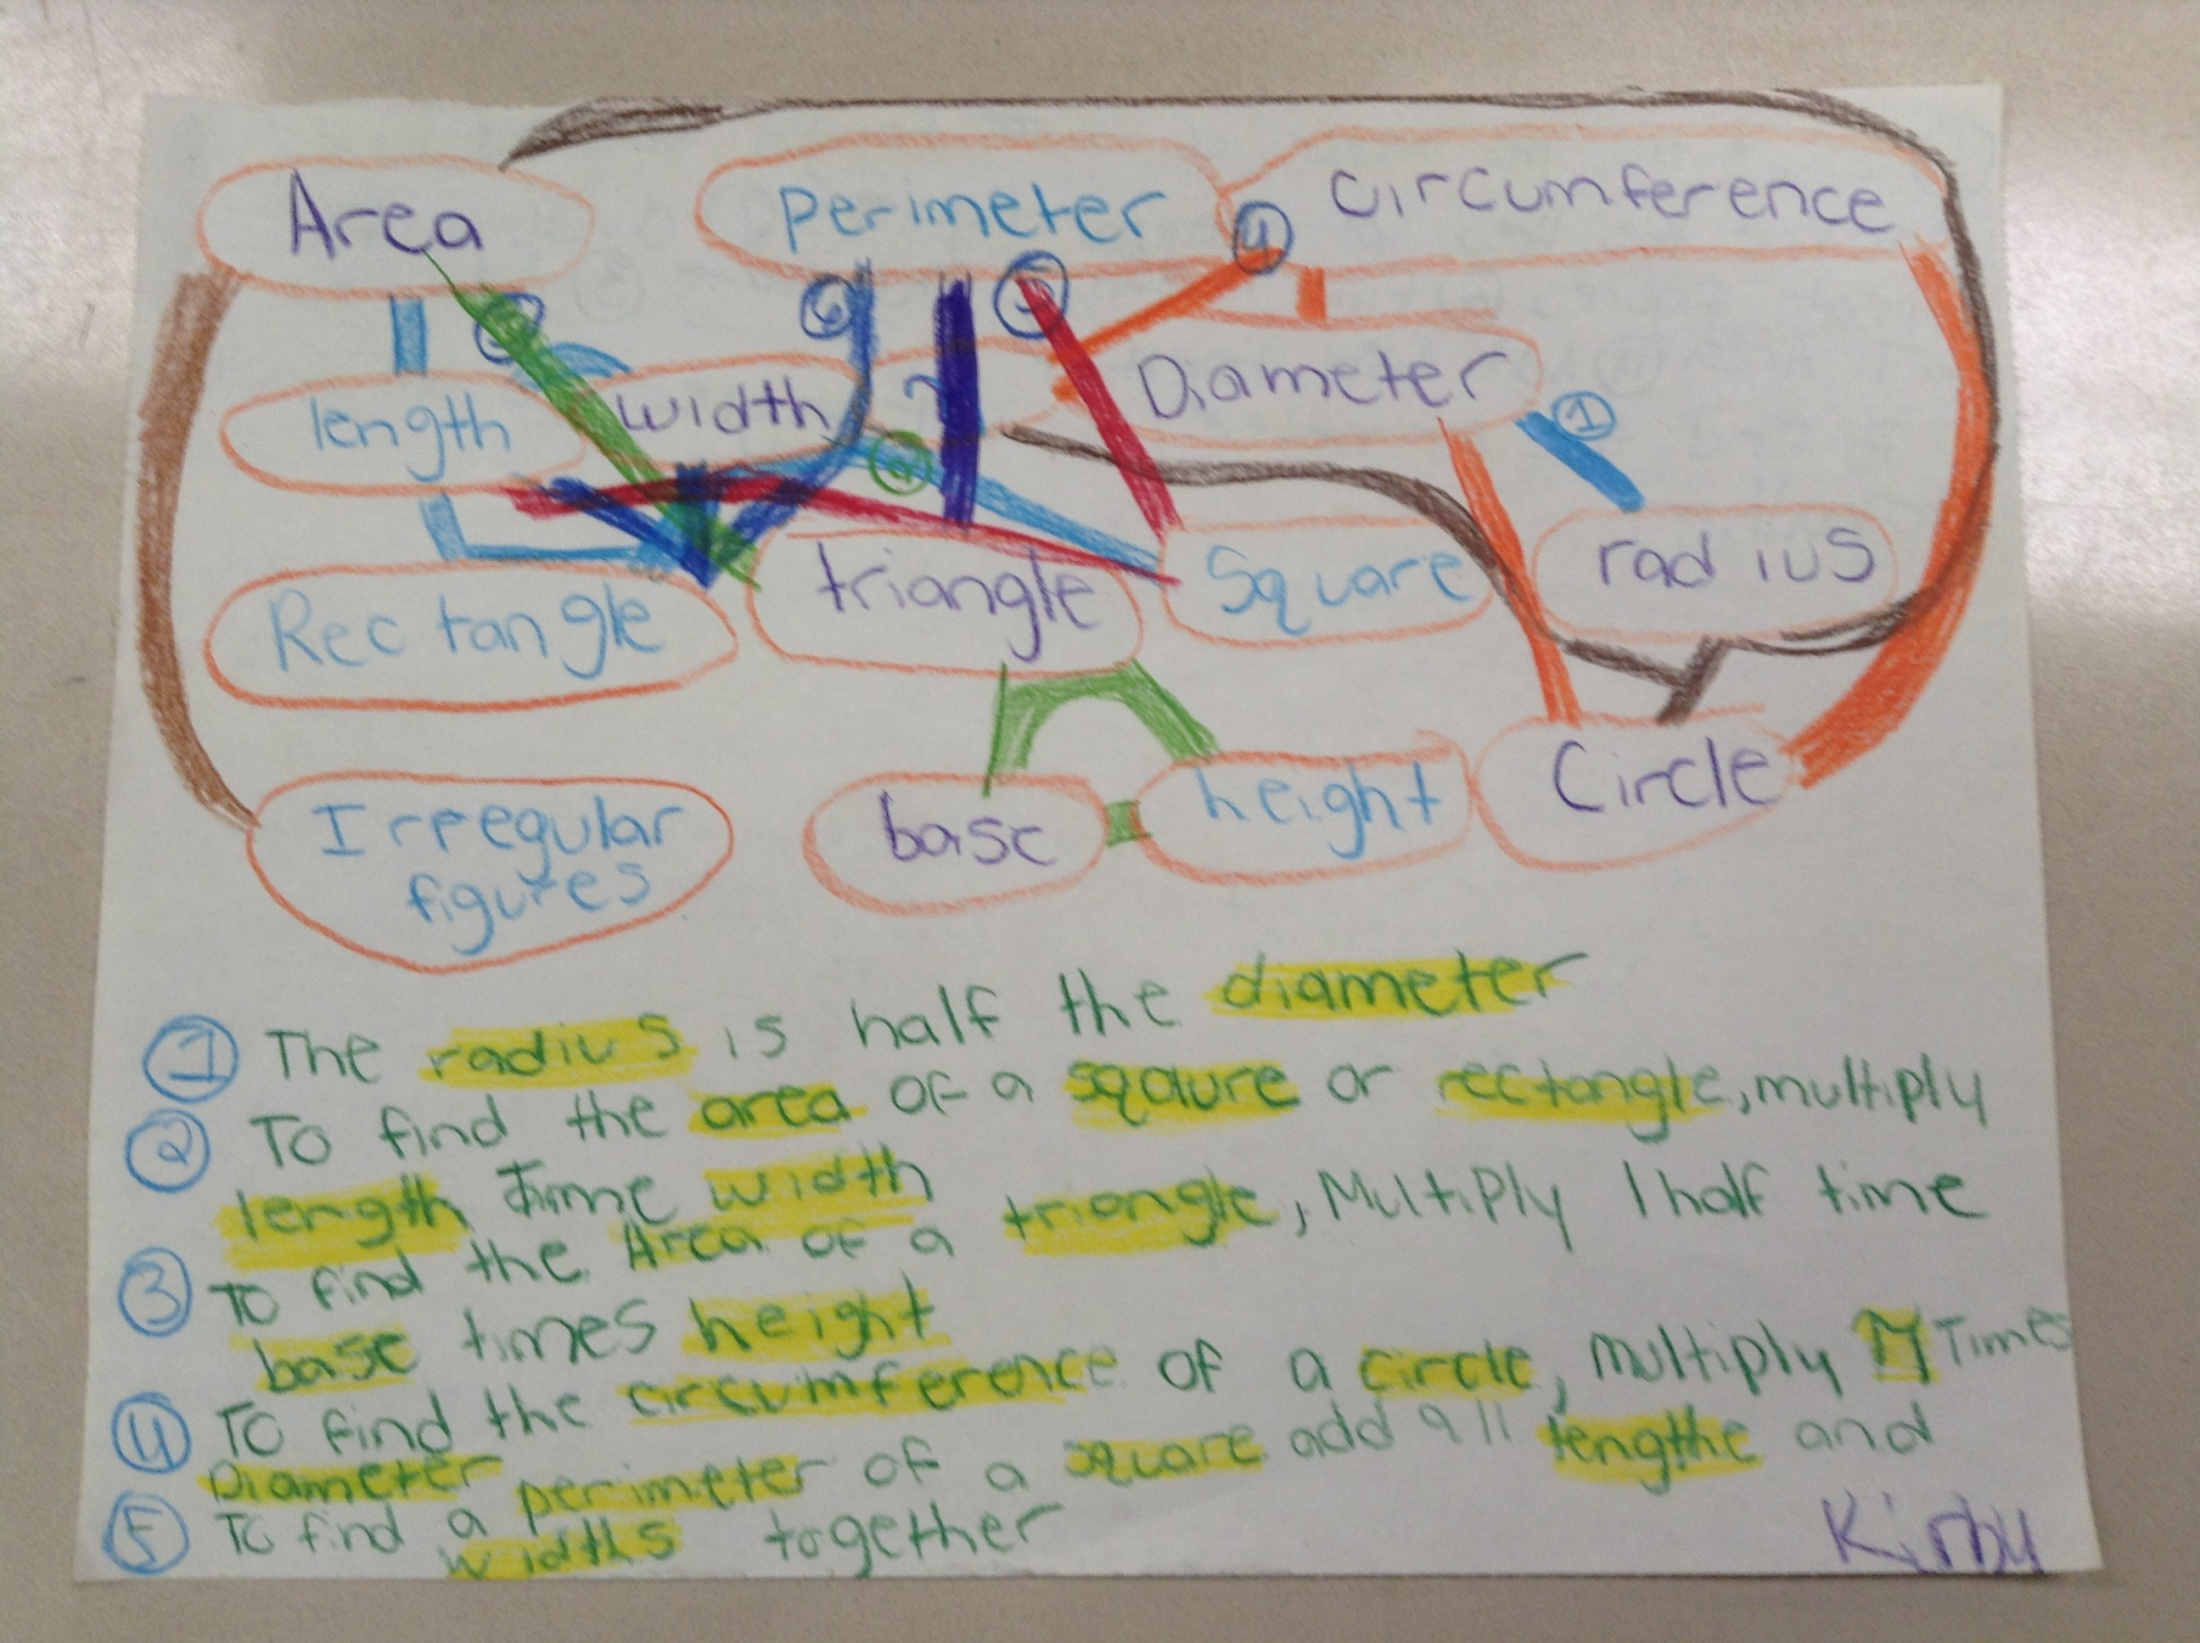 Area perimeter circumference
4
6 5
length width Diameter
1
Rectangle triangle Square radius
Irregular figures base height Circle
1 The radius is half the diameter
2 To find the area of a sqaure or rectangle, multiply
length time width
3 To find the Area of a triangle, Multiply 1 half time
base times height
4 To find the circumference of a circle, multiply Times
Diameter
5 To find a perimeter of a square add all lengthe and
widths together
Kirby